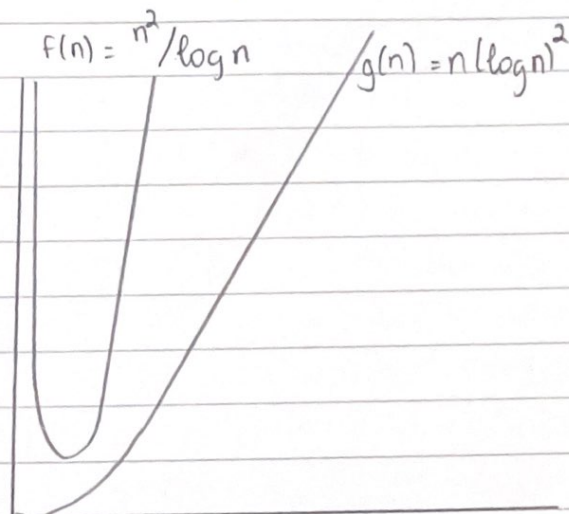 f(n) = n²/log n
g(n) = n(log n)²